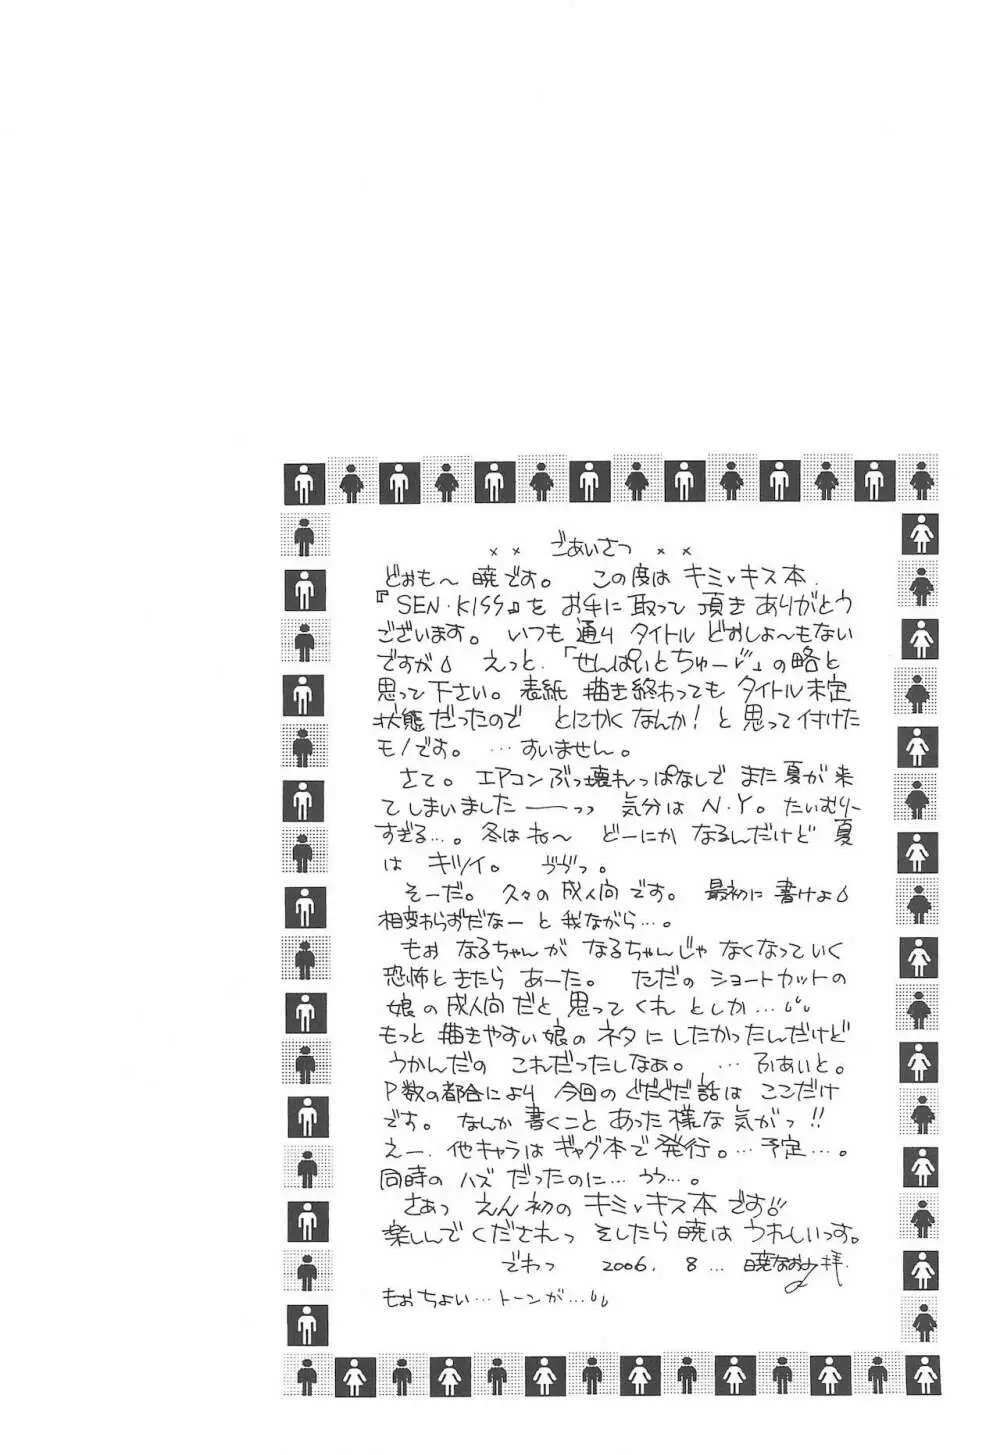 ×× ごあいさつ ××
どぉも〜 暁です。 この度は キミ♥キス本
『SEN・KISS』を お手に 取って 頂き ありがとう
ございます。 いつも 通り タイトル どおしょ〜もない
ですが えっと、「せんぱいとちゅー」の 略と
思って 下さい。 表紙 描き 終わっても タイトル 未定
状態 だったので とにかく なんか! と 思って 付けた
モノです。 …すいません。
さて。 エアコン ぶっ壊れっぱなしで また 夏が 来
てしまいました──っっ 気分は N・Y。 たいむり〜
すぎる…。 冬は ね〜 どーにか なるんだけど 夏
は キツイ。 ゔゔっ。
そーだ。 久々の 成人向 です。 最初に 書けよ
相変わらずだなー と 我ながら…。
もぉ なるちゃんが なるちゃんじゃ なくなっていく
恐怖ときたら あーた。 ただの ショートカットの
娘の 成人向だと 思ってくれ としか…
もっと 描きやすい 娘の ネタに したかったんだけど
うかんだの これだったしなぁ。 …ふぁいと。
P数の都合により 今回の どだぐだ 話は ここだけ
です。 なんか 書くこと あった 様な 気がっ!!
えー、他キャラは ギャグ本で 発行。…予定…。
同時の ハズ だったのに… うう…。
さぁっ えん初の キミ♥キス本 です
楽しんで くだされっ そしたら 暁は うれしいっす。
でわっ 2006. 8… 暁なおみ 拝.
もぉちょい…トーンが…